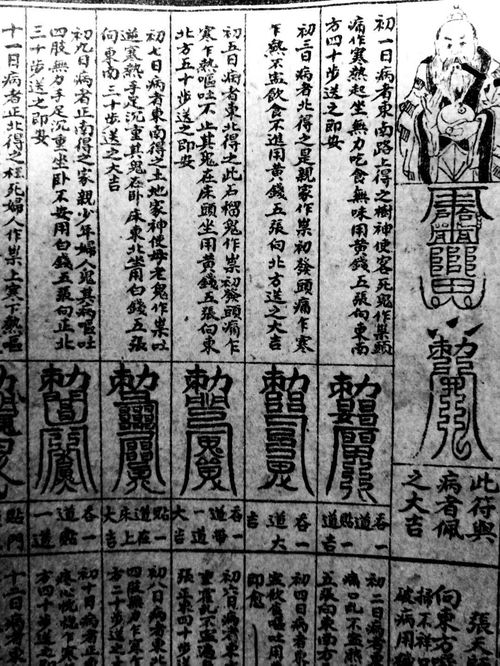 此符與
病者佩
之大吉
初一日病者東南路上得之樹神使客死鬼作祟頭
痛作寒熱起坐無力吃食無味用黄錢五張向東南
方四十步送之即安
初三日病者北得之是親家作祟初發頭痛乍寒
乍熱不盡飲食不進用黄錢五張向北方送之大吉
初五日病者東北得之此石榴鬼作祟初發頭痛乍
寒乍熱嘔吐不止其鬼在床頭坐用黄錢五張向東
北方五十步送之即安
初七日病者東南得之土地家神使母老鬼作祟以
寒熱手足沉重其鬼在卧床東北坐用白錢五張
向東南三十步送之大吉
初九日病者正南得之家親少年婦人鬼其病嘔吐
四肢無力手足沉重坐卧不安用白錢五張向正北
三十步送之即安
十一日病者正北得之枉死婦人作祟上寒下熱嘔
吞一
道點一
道吉
吞一
道大
吉
吞一
道帶
一道
大吉
點一
道在
床上
大吉
吞一
道點
一道
點門
張
向東方
掃不祥
破病用
初二日病者東南
五張向東南方
初四日病者東
飲食嘔吐用
即愈
初六日病者東北
張正東四十步
初八日病者東北
四肢無力乍寒乍
方二十步送
初十日病者正
疼心恍惚乍寒
方四十步
十二日病者東